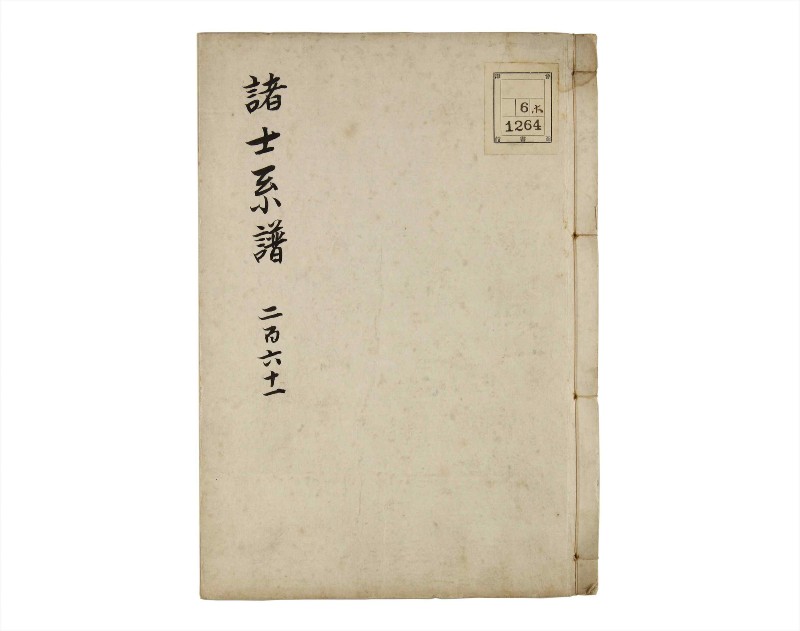 諸士系譜 二百六十一
6 ホ
1264